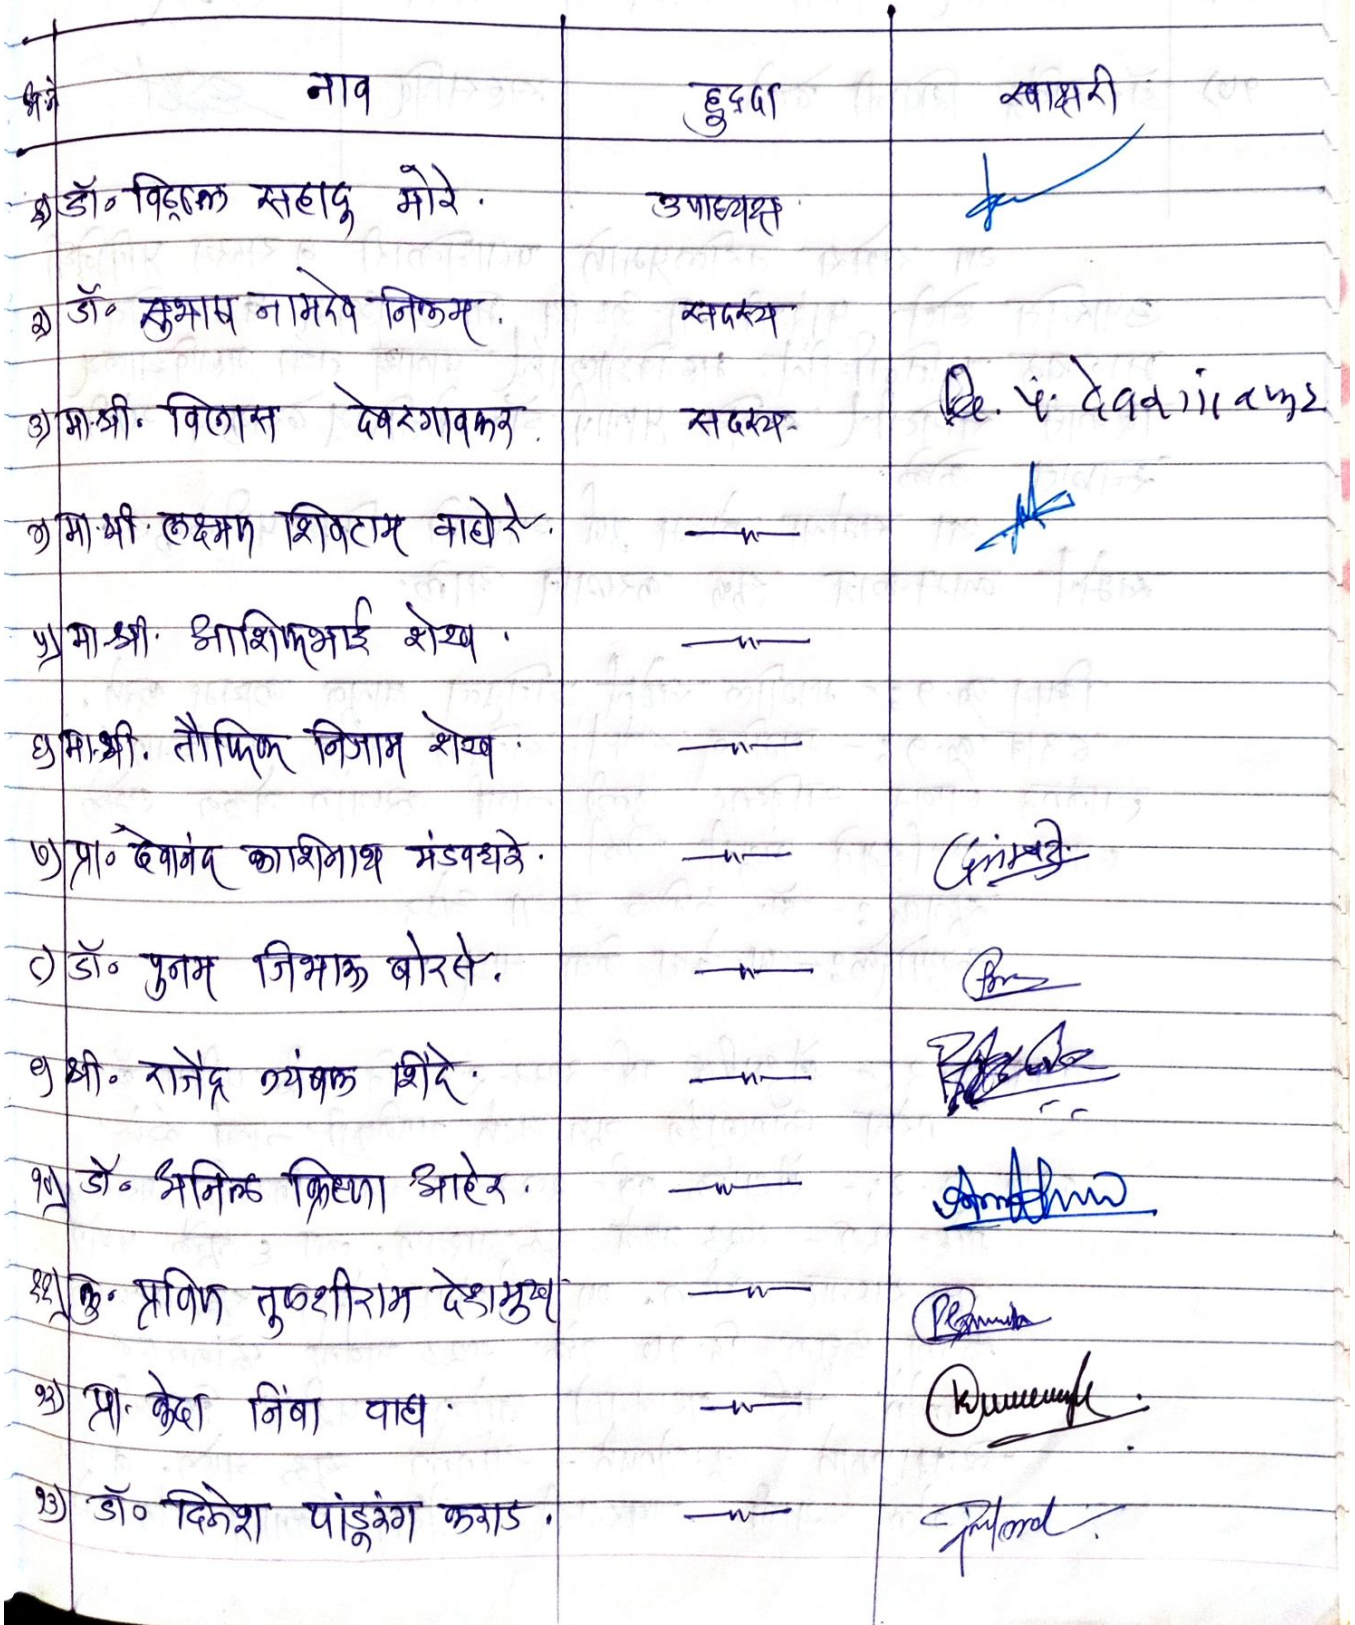 नाव हुद्दा स्वाक्षरी
१) डॉ० विठ्ठल सहादु मोरे. उपाध्यक्ष
२) डॉ० सुभाष नामदेव निकम. सदस्य
३) मा.श्री. विलास देवरगावकर सदस्य
४) मा.श्री. लक्ष्मण शिवराम वाघेरे. —〃—
५) मा.श्री. आशिकभाई शेख. —〃—
६) मा.श्री. तौफिक निजाम शेख. —〃—
७) प्रा० देवानंद काशिनाथ मंडवधरे. —〃—
८) डॉ० पुनम जिभाऊ बोरसे. —〃—
९) श्री० राजेंद्र त्र्यंबक शिंदे. —〃—
१०) डॉ० अनिल क्रिष्णा आहेर. —〃—
११) कु. प्रविण तुळशीराम देशमुख —〃—
१२) प्रा. केदा निंबा वाघ. —〃—
१३) डॉ० दिनेश पांडूरंग कराड. —〃—